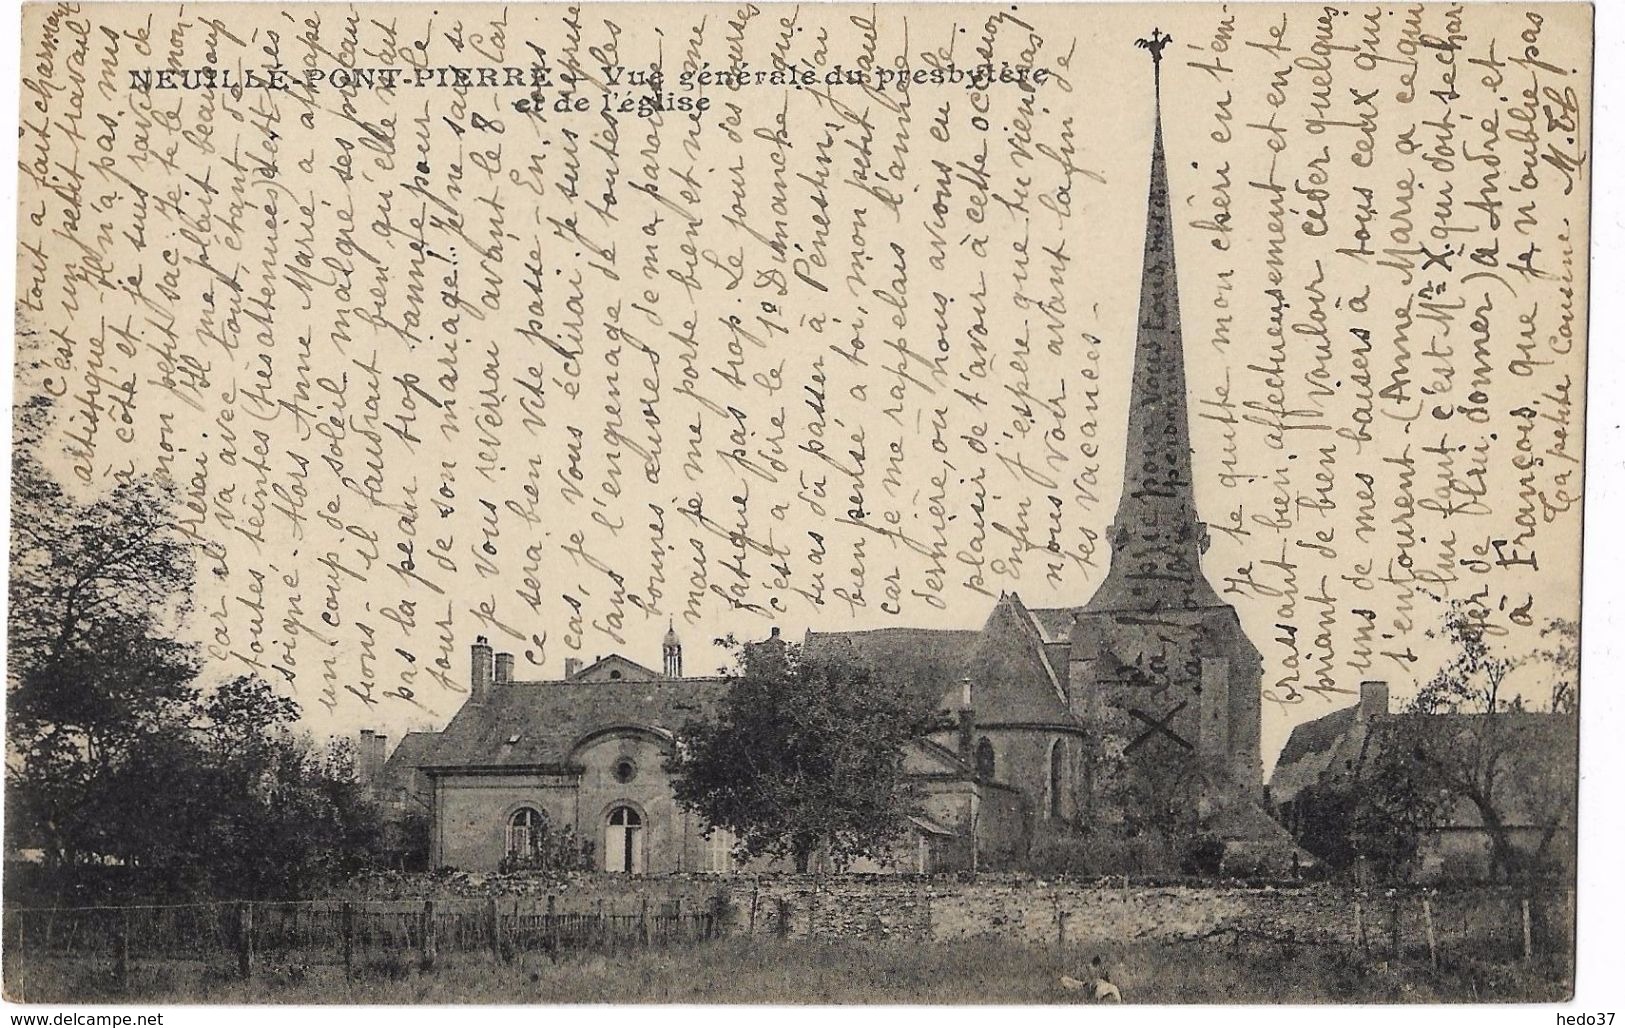 NEUILLÉ-PONT-PIERRE — Vue générale du presbytère
et de l'église
tout à fait charmant
C'est un petit travail
artistique - Il n'a pas mis
à côté et je suis ravie de
mon petit sac. Je te le mon-
trerai. Il me plait beaucoup
car il va avec tout, étant de
toutes teintes (très atténuées) et très
soigné - Alors Anne Marie a attrapé
un coup de soleil malgré ses précau-
tions - il faudrait bien qu'elle n'ait
pas la peau trop tannée pour le
jour de son mariage!.. Je ne sais si
je vous reverrai avant le 8 - Car
ce sera bien vite passé - En tous
cas, je vous écrirai. Je suis reprise
dans l'engrenage de toutes les
bonnes œuvres de ma paroisse,
mais je me porte bien et ne me
fatigue pas trop. Le jour des courses
c'est à dire le 1er Dimanche que
tu as dû passer à Pénestin, j'ai
bien pensé à toi, mon petit Paul
car je me rappelais l'année
dernière, où nous avions eu le
plaisir de t'avoir à cette occasion.
Enfin j'espère que tu viendras
nous voir avant la fin de
tes vacances -
Je te quitte mon chéri en t'em-
brassant bien affectueusement et en te
priant de bien vouloir céder quelques
uns de mes baisers à tous ceux qui
t'entourent - (Anne Marie a ce qui
lui faut c'est Mr X qui doit se char-
ger de lui donner) à André, et
à François, que je n'oublie pas
Ta petite Cousine
Là, je prie pour vous tous
sans oublier personne
X
hedo37
www.delcampe.net